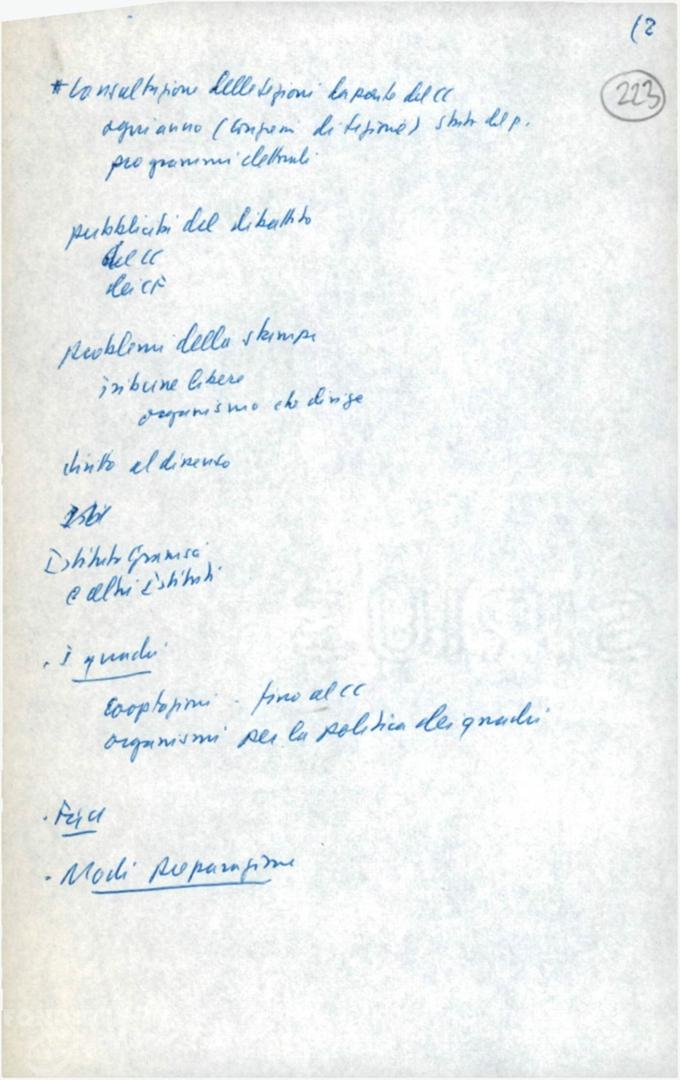 (2
223
* Consultazione delle sezioni da parte del CC
ogni anno (Congressi di sezione) stato del p.
programmi elettorali
pubblicità del dibattito
del CC
dei CF
problemi della stampa
tribune libere
organismo che dirige
diritto al dissenso
Istituto Gramsci
e altri istituti
. I quadri
Cooptazioni - fino al CC
organismi per la politica dei quadri
. FGCI
. Modi preparazione